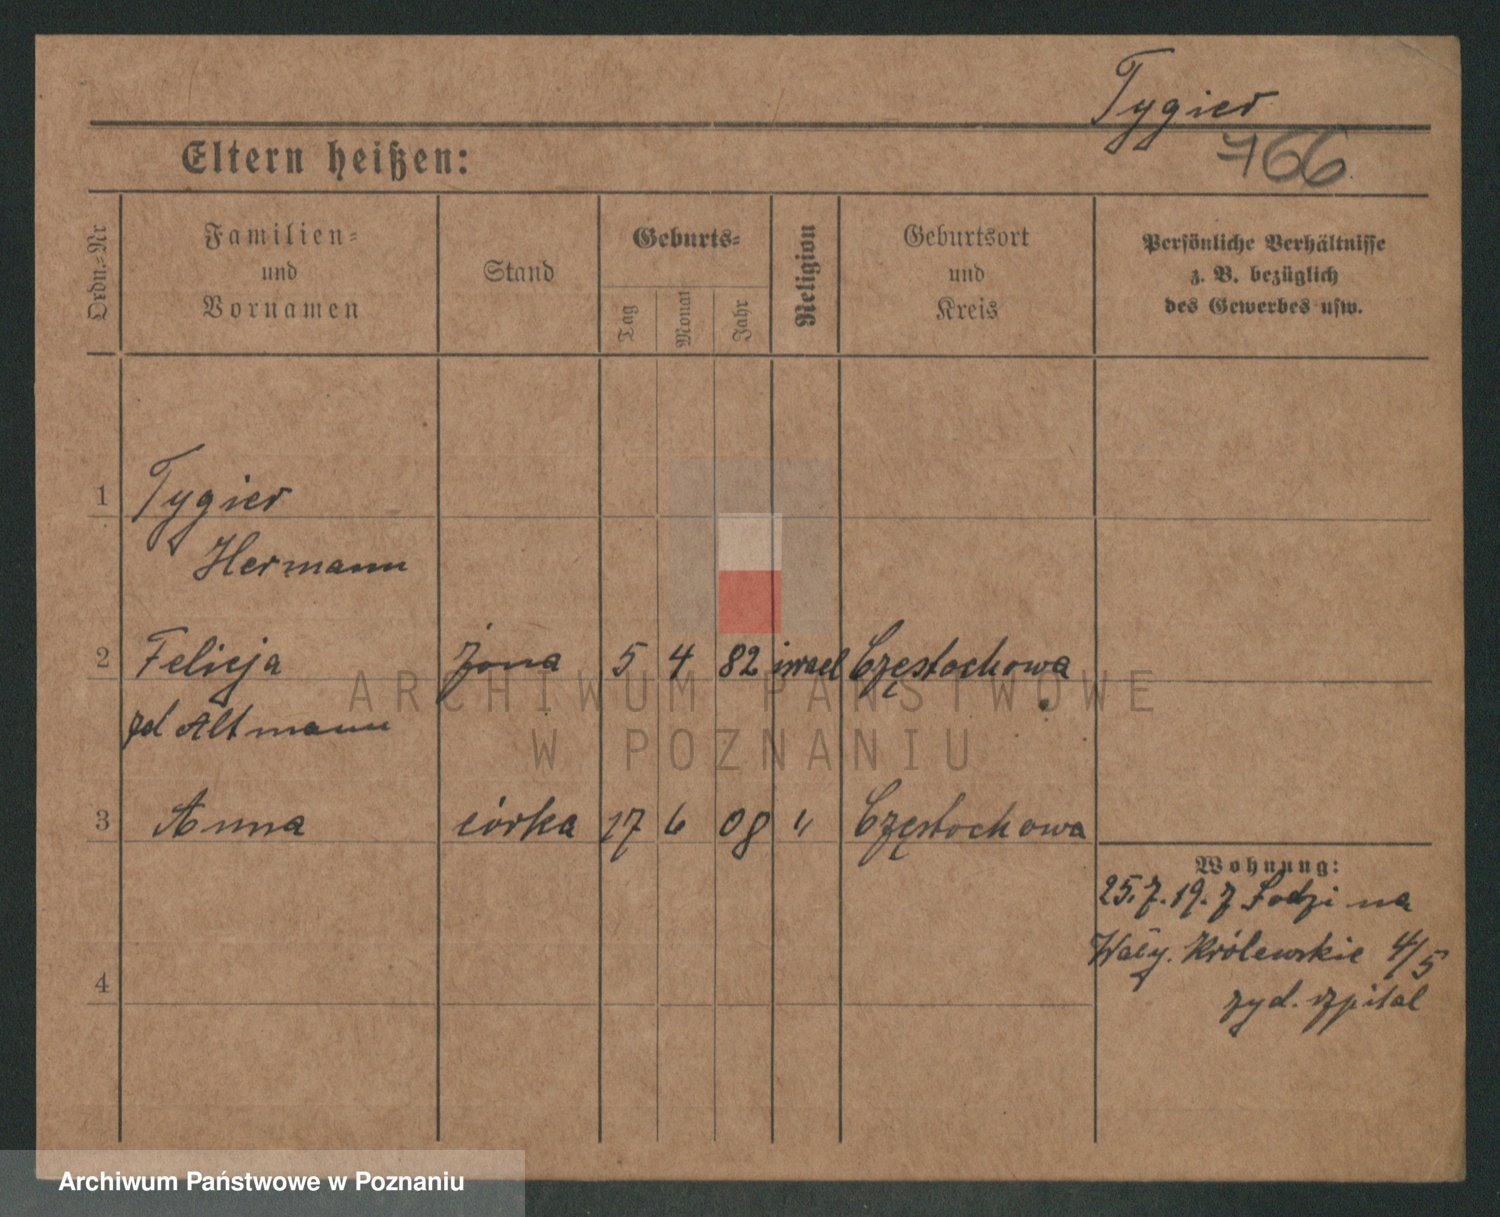 Tygier
766
Eltern heißen:
Ordn.-Nr
Familien-
und
Vornamen
Stand
Geburts-
Tag
Monat
Jahr
Religion
Geburtsort
und
Kreis
Persönliche Verhältnisse
z. B. bezüglich
des Gewerbes usw.
1 Tygier
Hermann
2 Felicja żona 5 4 82 israel Częstochowa
zd Altmann
3 Anna córka 17 6 08 " Częstochowa
Wohnung:
25.7.19. z Łodzi na
Wały. Królewskie 4/5
żyd. szpital
4
ARCHIWUM PAŃSTWOWE
W POZNANIU
Archiwum Państwowe w Poznaniu